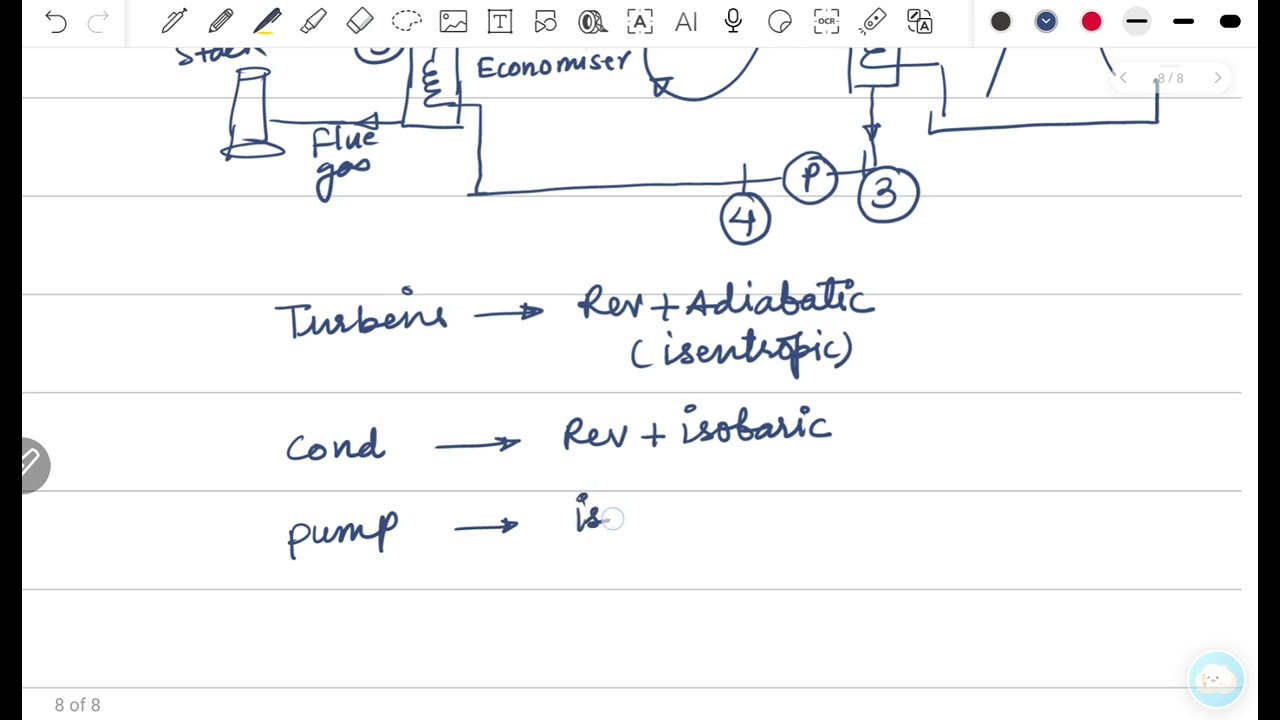 T
A
AI
OCR
A
Economiser
8/8
Flue
gas
P
3
4
Turbens → Rev + Adiabatic
(isentropic)
Cond → Rev + isobaric
pump → is
8 of 8